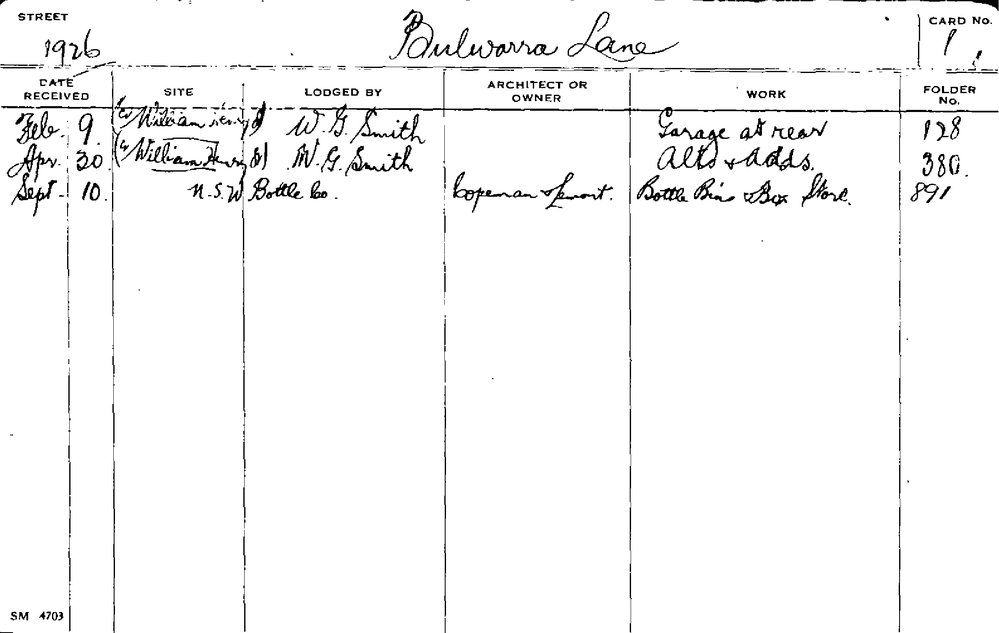 STREET
1926
Bulwarra Lane
CARD No.
1
DATE RECEIVED SITE LODGED BY ARCHITECT OR OWNER WORK FOLDER No.
Feb. 9. (Cr William Henry St) W. G. Smith Garage at rear 128
Apr. 30. (Cr William Henry St) W. G. Smith Alts & Adds. 380.
Sept. 10. N.S.W Bottle Co. Copeman & Lemont. Bottle Bins & Box Store. 891
SM 4703